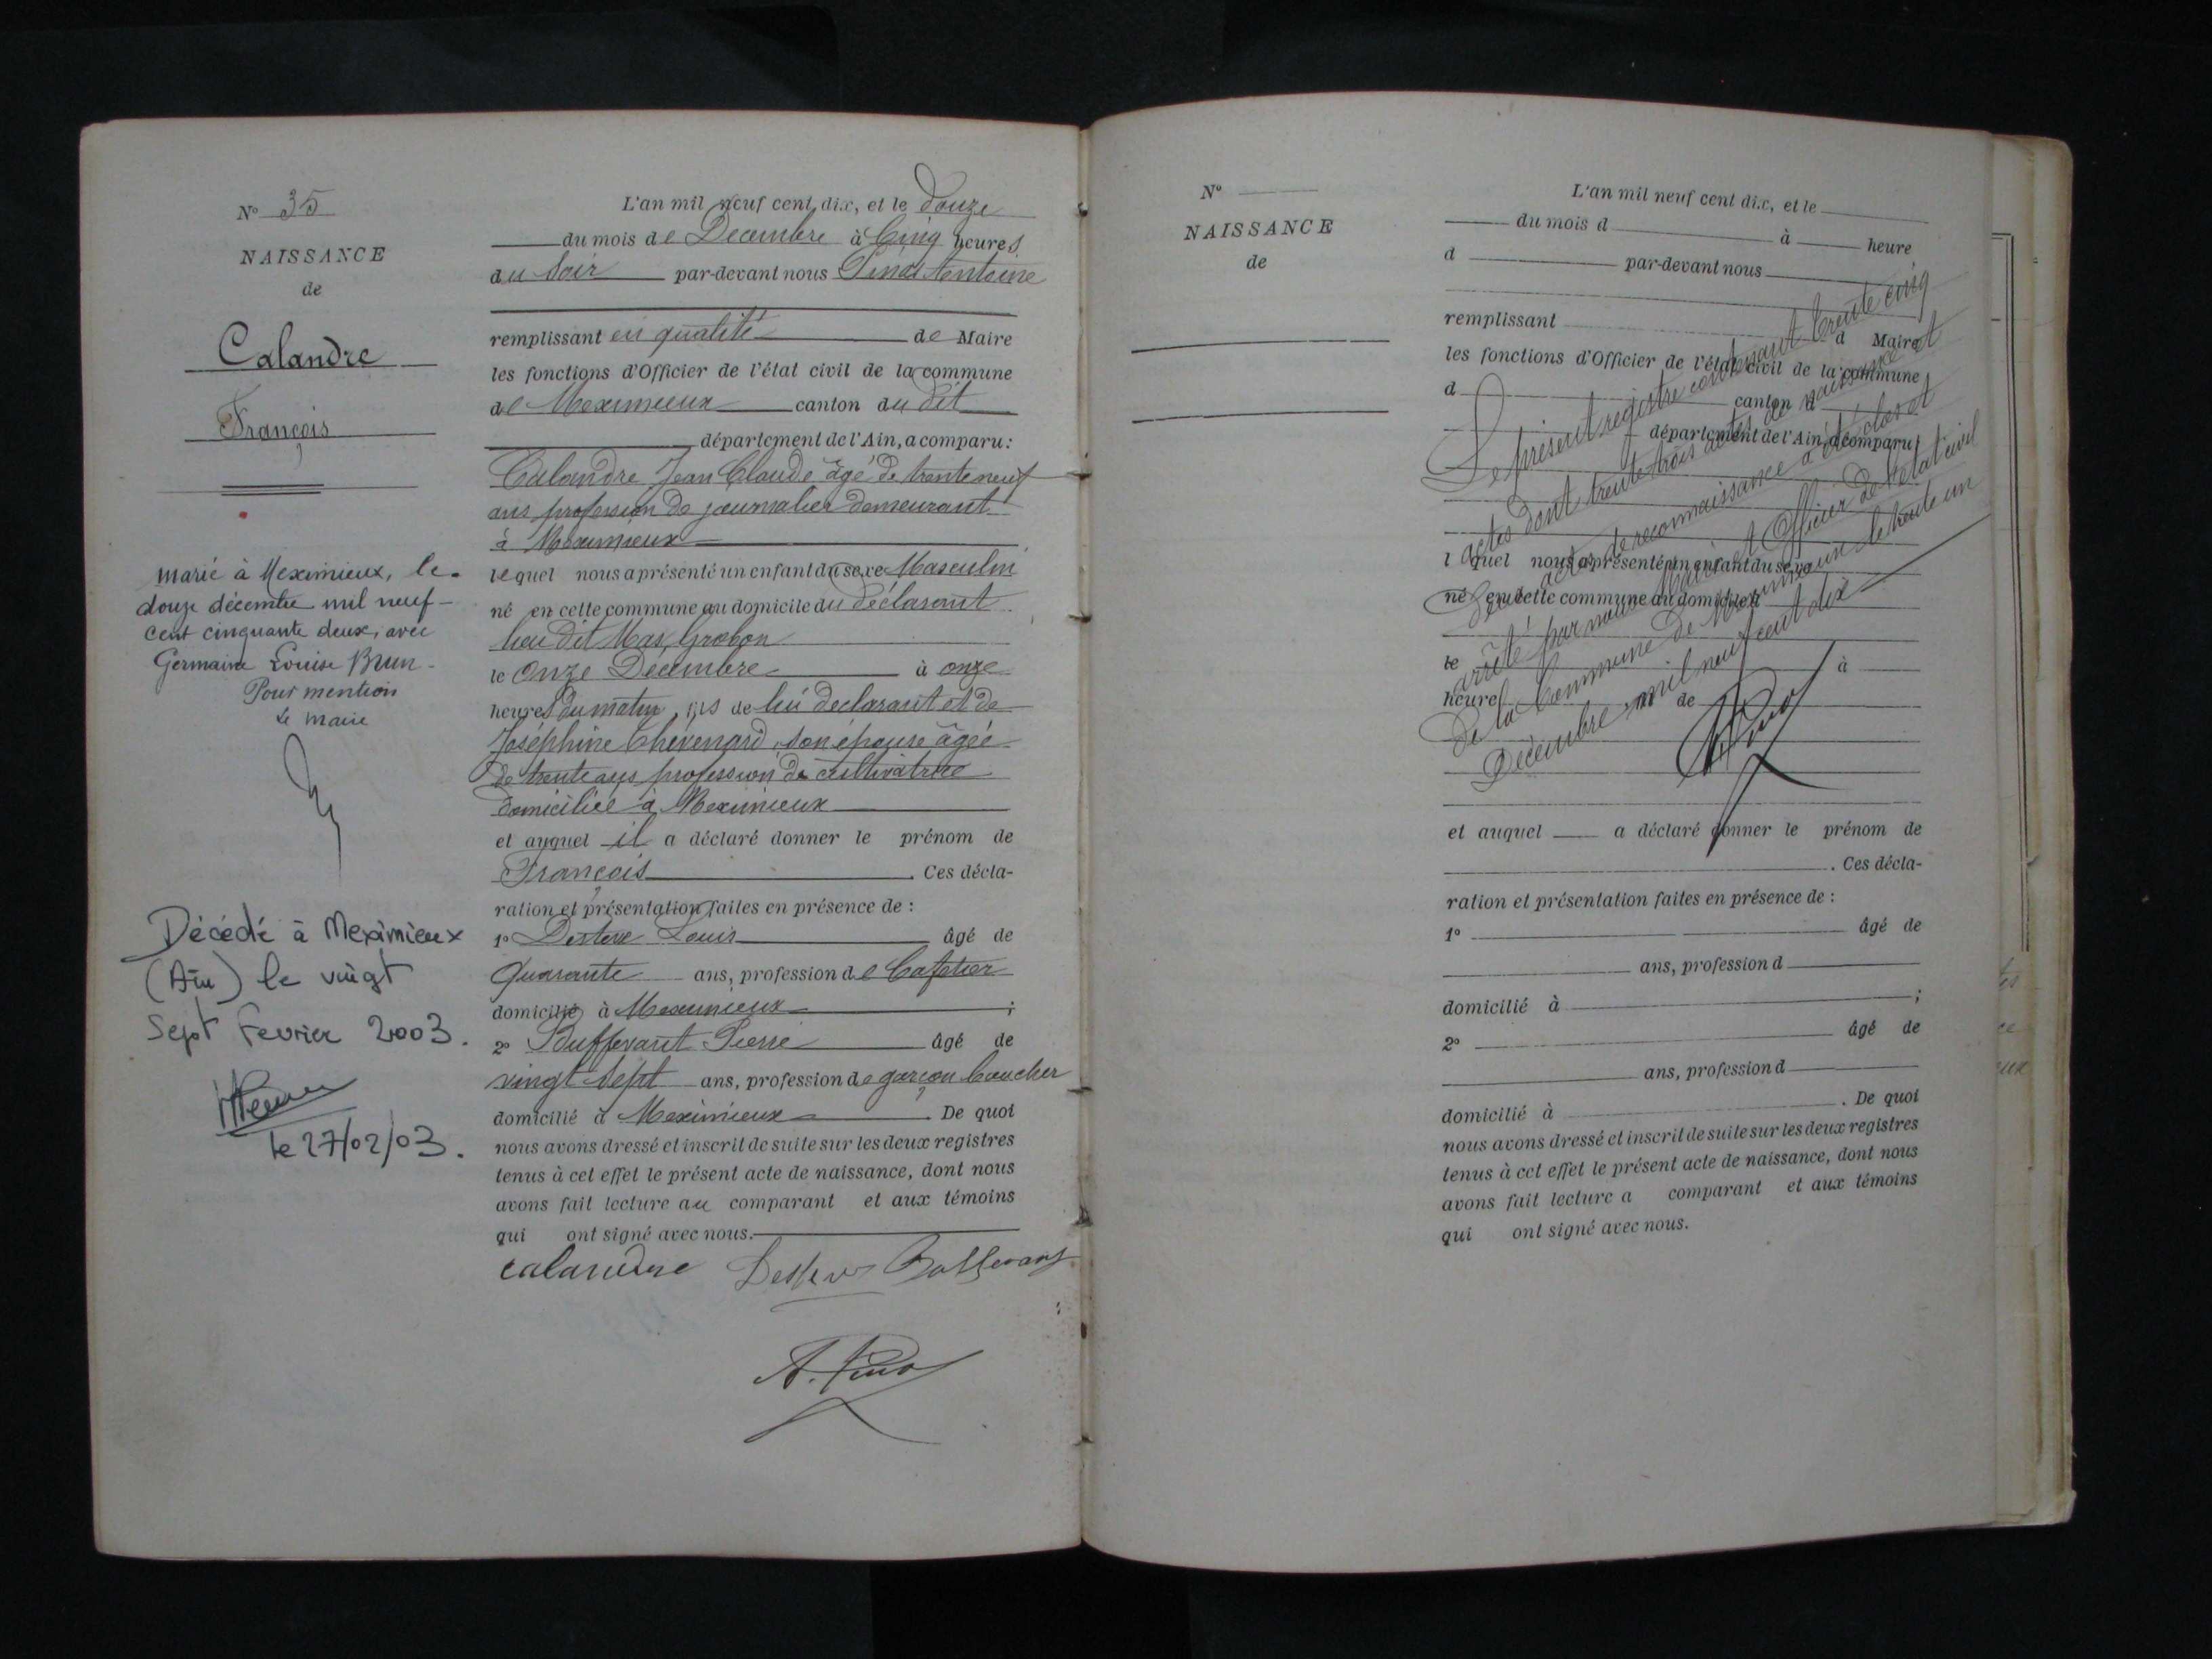 N° 35
NAISSANCE
de
Calandre
François
marié à Meximieux, le
douze décembre mil neuf
cent cinquante deux, avec
Germaine Louise Brun.
Pour mention
Le maire
Décédé à Meximieux
(Ain) le vingt
Sept Fevrier 2003.
le 27/02/03.
L'an mil neuf cent dix, et le douze
du mois de Decembre à Cinq heures
du Soir par-devant nous Pinod Antoine
remplissant en qualité de Maire
les fonctions d'Officier de l'état civil de la commune
de Meximieux canton du dit
département de l'Ain, a comparu:
Calandre Jean Claude âgé de trente neuf
ans profession de journalier demeurant
à Meximieux
lequel nous a présenté un enfant du sexe Masculin
né en cette commune au domicile du déclarant
lieu dit Mas Grobon
le Onze Decembre à onze
heures du matin, fils de lui declarant et de
Joséphine Chevenard, son épouse âgée
de trente ans profession de cultivatrice
domiciliée à Meximieux
et auquel il a déclaré donner le prénom de
François. Ces décla-
ration et présentation faites en présence de :
1° Desteve Louis âgé de
Quarante ans, profession de Cafetier
domicilié à Meximieux ;
2° Buffevant Pierre âgé de
vingt sept ans, profession de garçon boucher
domicilié à Meximieux. De quoi
nous avons dressé et inscrit de suite sur les deux registres
tenus à cet effet le présent acte de naissance, dont nous
avons fait lecture au comparant et aux témoins
qui ont signé avec nous.
calandre Buffevant
N°
NAISSANCE
de
L'an mil neuf cent dix, et le
du mois d à heure
d par-devant nous
remplissant d Maire
les fonctions d'Officier de l'état civil de la commune
d canton d
département de l'Ain, a comparu:
l quel nous a présenté un enfant du sexe
né en cette commune au domicile d
le à
heure de
et auquel a déclaré donner le prénom de
. Ces décla-
ration et présentation faites en présence de :
1° âgé de
ans, profession d
domicilié à ;
2° âgé de
ans, profession d
domicilié à . De quoi
nous avons dressé et inscrit de suite sur les deux registres
tenus à cet effet le présent acte de naissance, dont nous
avons fait lecture a comparant et aux témoins
qui ont signé avec nous.
Le présent registre contenant trente cinq
actes dont trente trois actes de naissance et
deux actes de reconnaissance a été clos et
arrêté par nous Maire et Officier de l'état civil
de la Commune de Meximieux le trente un
Décembre mil neuf cent dix